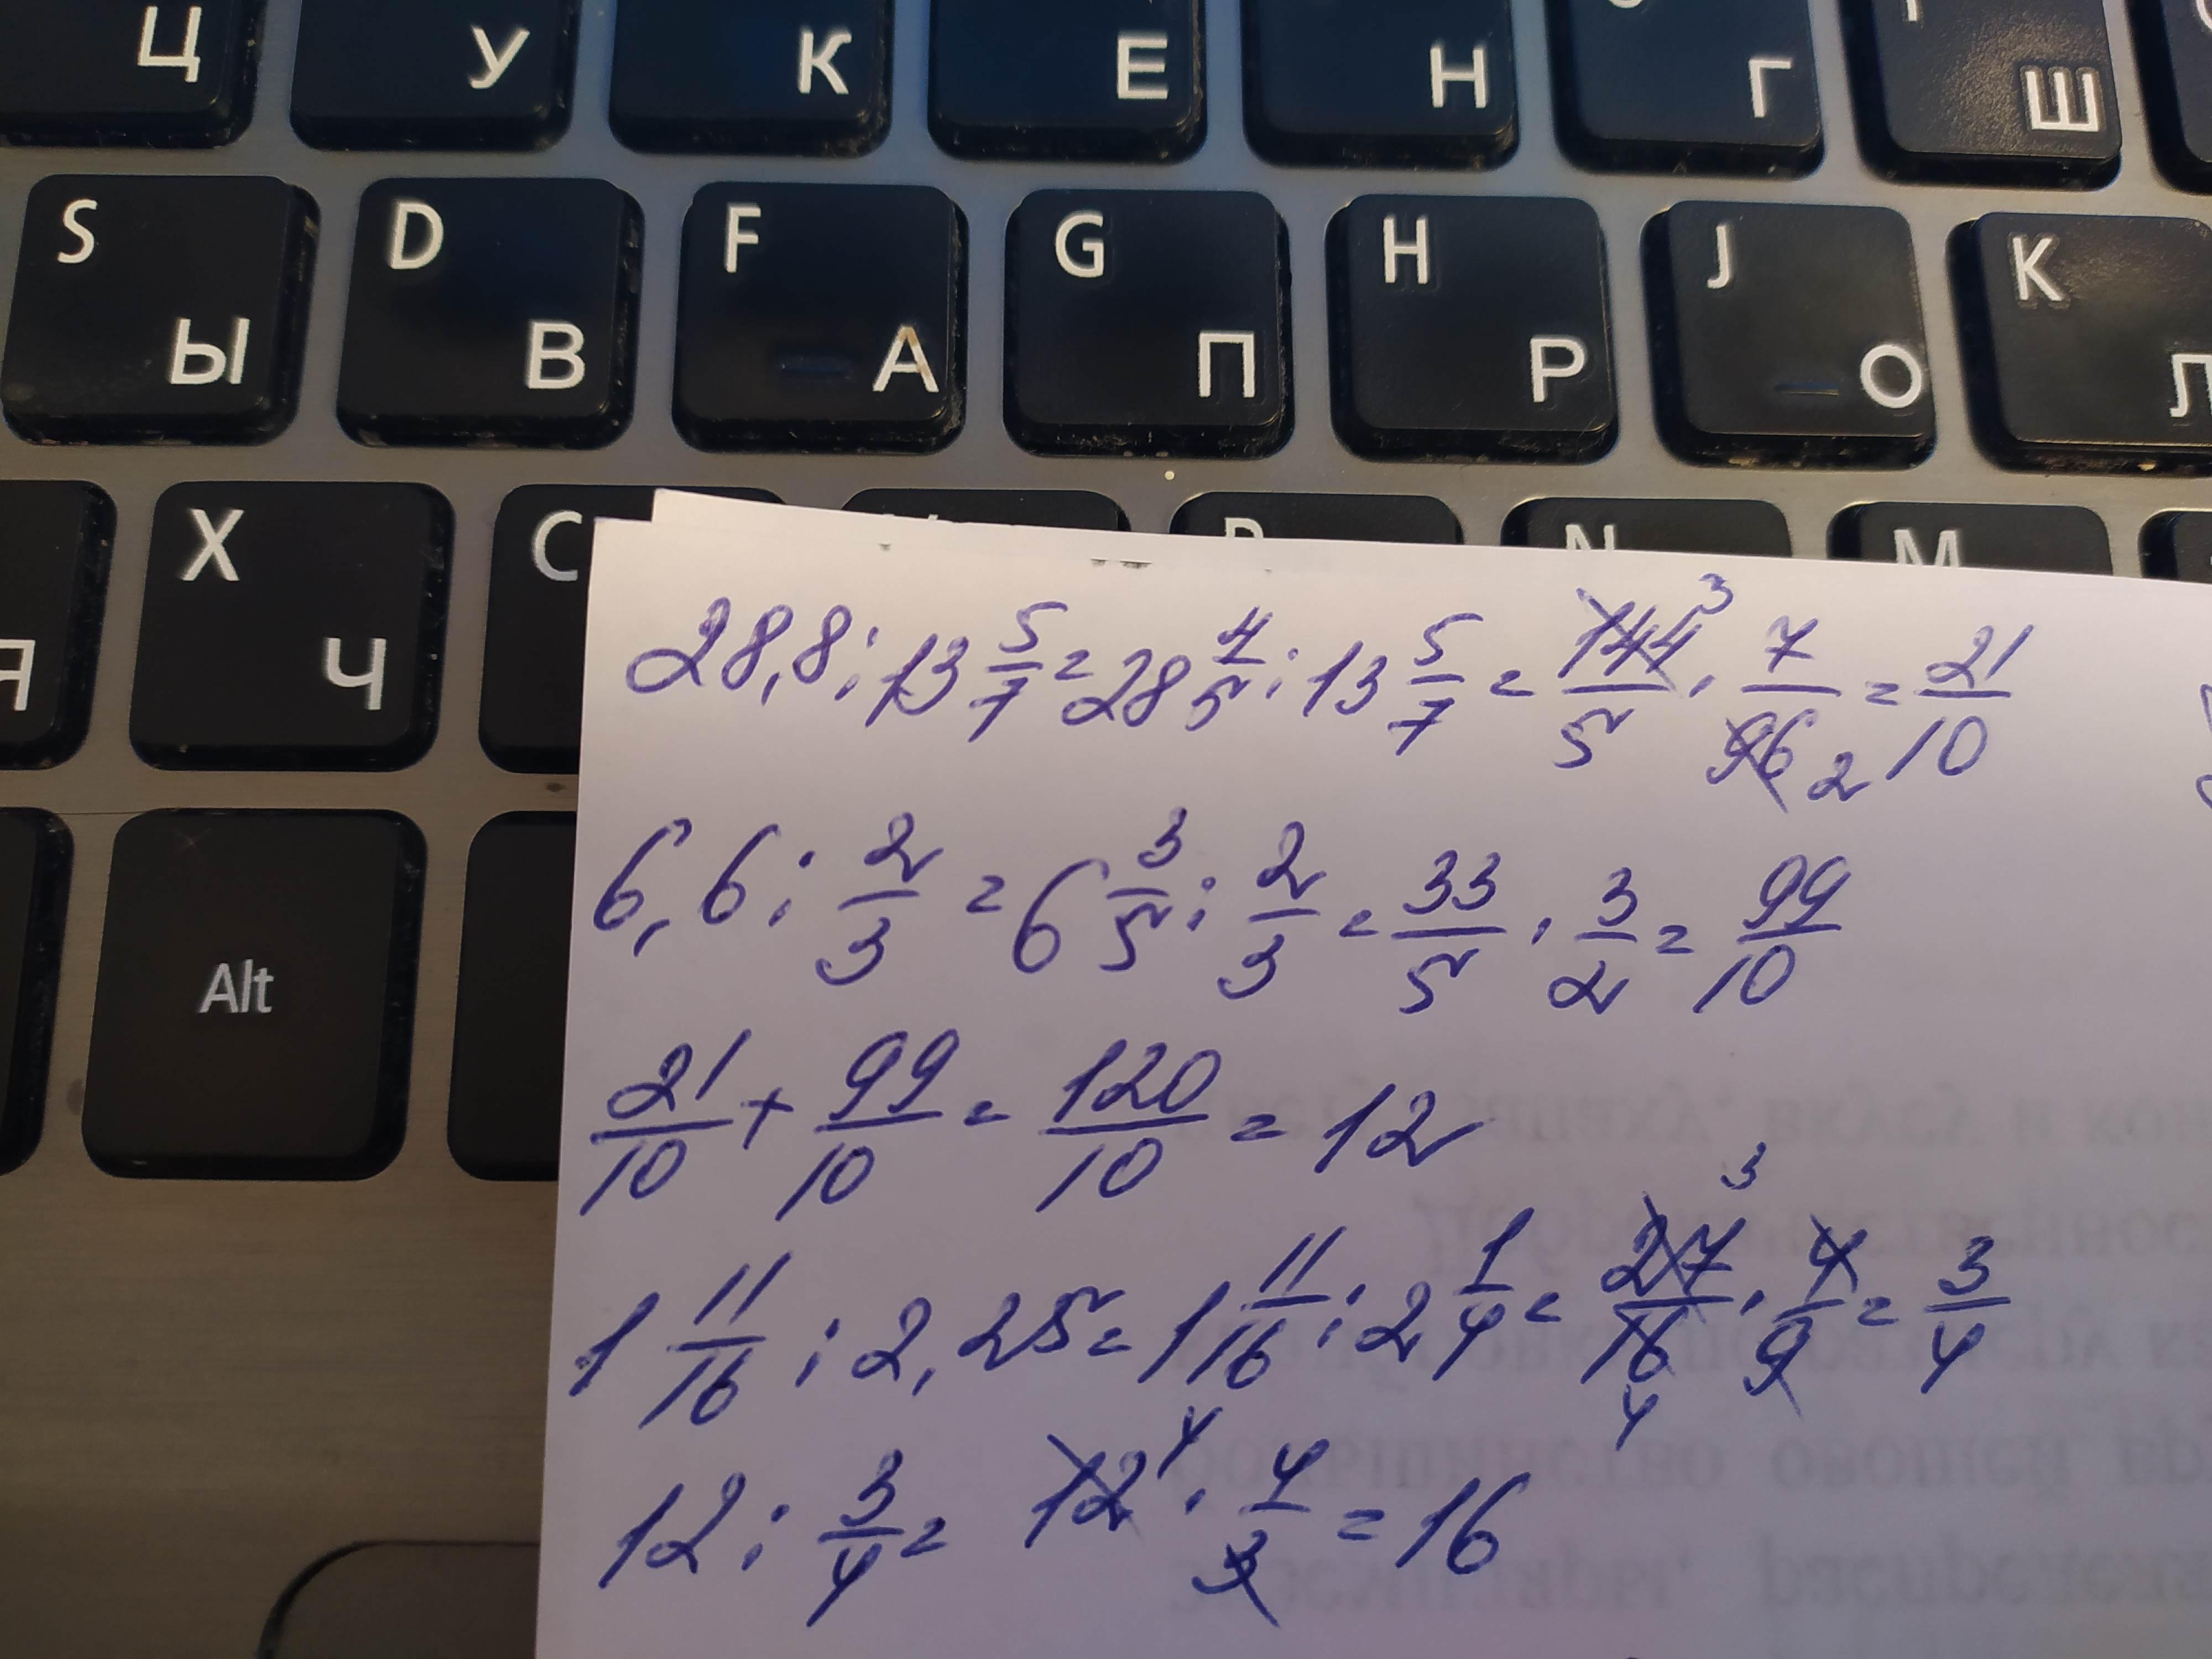 Ц У К Е Н Г Ш
S Ы D В F А G П H Р J О K Л
Я X Ч C N M
Alt
28,8 : 13 5/7 = 28 4/5 : 13 5/7 = 144/5 3 · 7/96 2 = 21/10
6,6 : 2/3 = 6 3/5 : 2/3 = 33/5 · 3/2 = 99/10
21/10 + 99/10 = 120/10 = 12
1 11/16 : 2,25 = 1 11/16 : 2 1/4 = 27/16 3 4 · 4/9 = 3/4
12 : 3/4 = 12 4 · 4/3 = 16